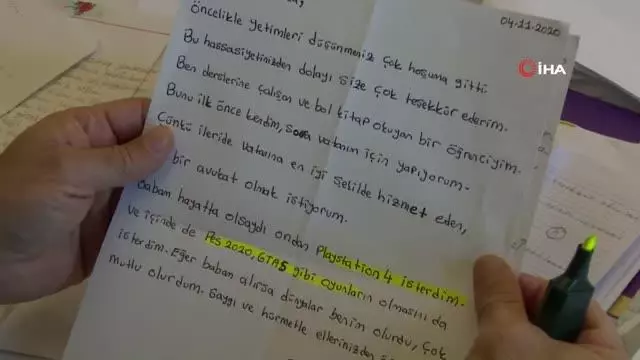 04.11.2020
öncelikle yetimleri düşünmeniz çok hoşuma gitti
Bu hassasiyetinizden dolayı size çok teşekkür ederim.
Ben derslerine çalışan ve bol kitap okuyan bir öğrenciyim.
Bunu ilk önce kendim, sonra vatanım için yapıyorum.
Çünkü ileride vatanına en iyi şekilde hizmet eden,
bir avukat olmak istiyorum.
Babam hayatta olsaydı ondan Playstation 4 isterdim.
ve içinde de Pes 2020, GTA5 gibi oyunların olmasını da
isterdim. Eğer babam alırsa dünyalar benim olurdu, çok
mutlu olurdum. Saygı ve hürmetle ellerinizden
İHA